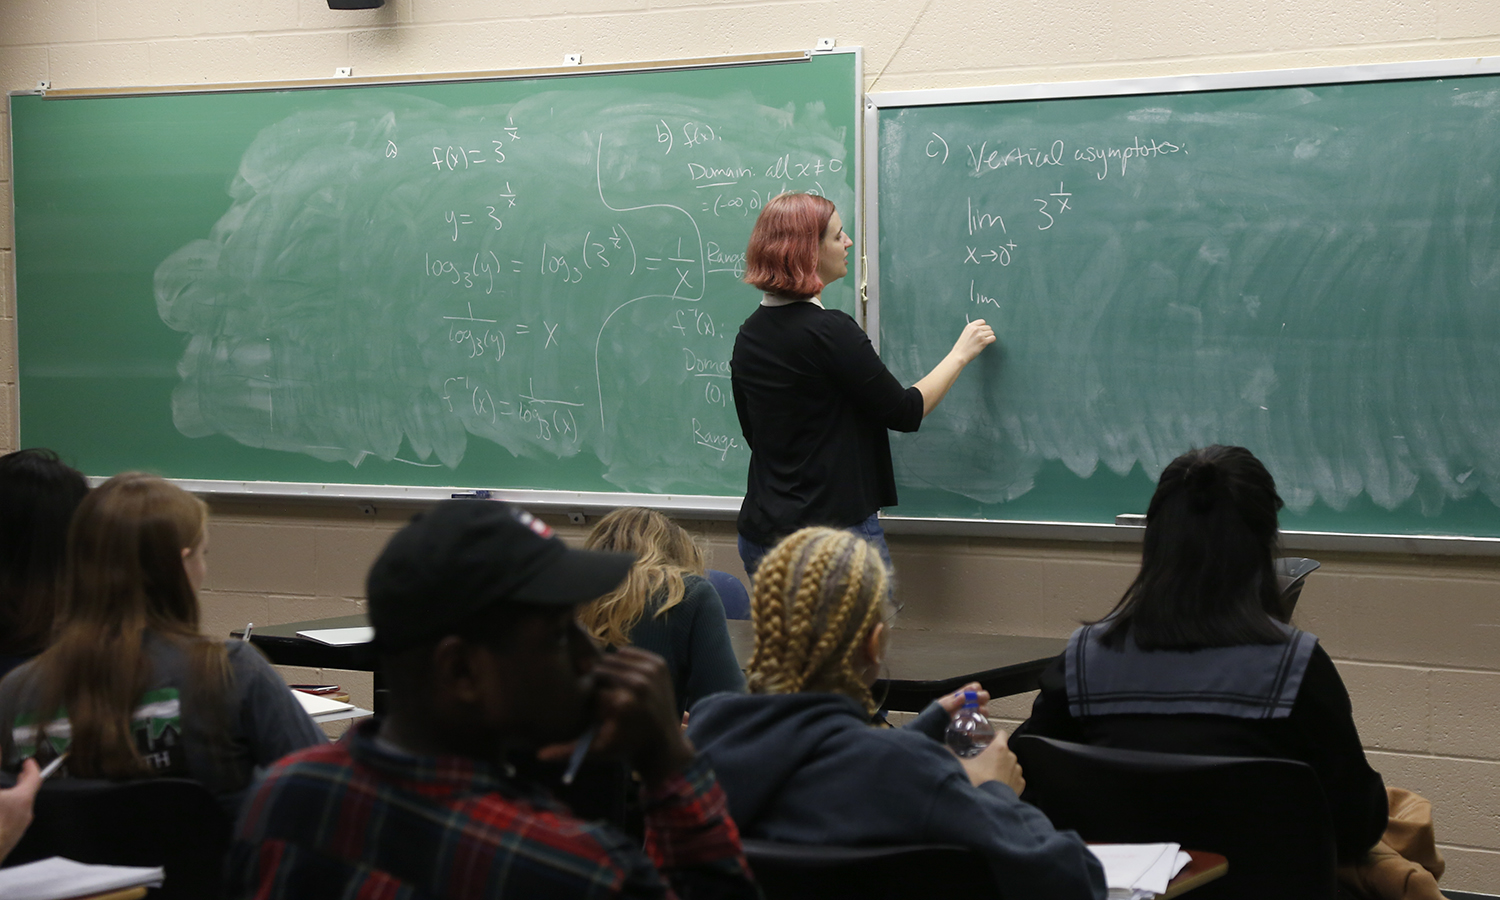 a) f(x) = 3^{1/x}
y = 3^{1/x}
log₃(y) = log₃(3^{1/x}) = 1/x
1/log₃(y) = x
f⁻¹(x) = 1/log₃(x)
b) f(x):
Domain: all x ≠ 0
= (-∞, 0)
Range
f⁻¹(x):
Doma
(0,
Range
c) Vertical asymptotes:
lim 3^{1/x}
x→0⁺
lim
TH